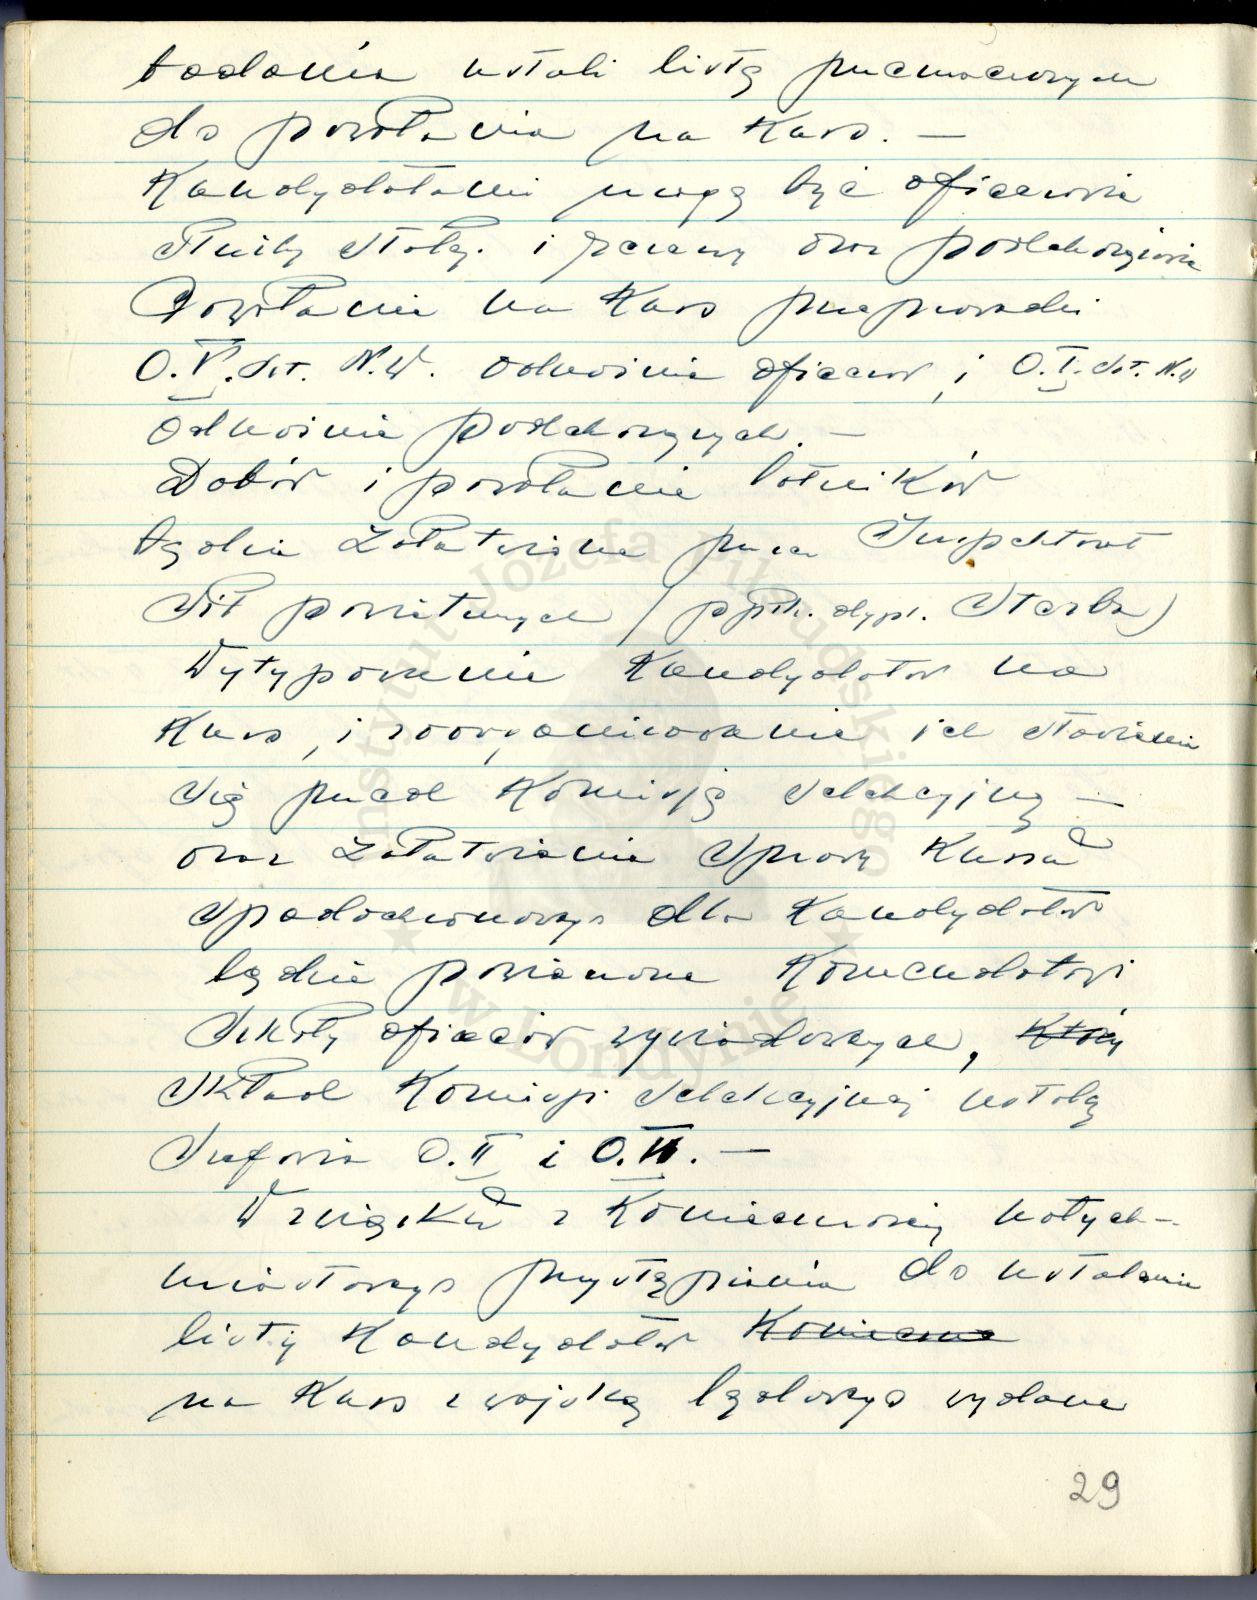 badania ustali listę przeznaczonych
do powołania na Kurs. —
Kandydatami mogą być oficerowie
służby stałej. i rezerwy oraz podchorążowie
Powołanie na Kurs przeprowadzi
O.V. Szt. N.W. odnośnie oficerów, i O.I. Szt. N.W
odnośnie podchorążych. —
Dobór i powołanie lotników
będzie załatwione przez Inspektorat
Sił powietrznych (ppłk. dypl.
Wytypowanie Kandydatów na
Kurs, i zorganizowanie ich stawienia
się przed Komisją Selekcyjną —
oraz załatwienie sprawy Kursu
spadochronowego dla Kandydatów
będzie powierzone Komendantowi
Szkoły oficerów wywiadowczych, który
Skład Komisji Selekcyjnej ustalą
Szefowie O.II i O.VI. —
W związku z Koniecznością natych-
miastowego przystąpienia do ustalenia
listy Kandydatów Konieczne
na Kurs z wojska lądowego wydane
29
Instytut Józefa Piłsudskiego
w Londynie